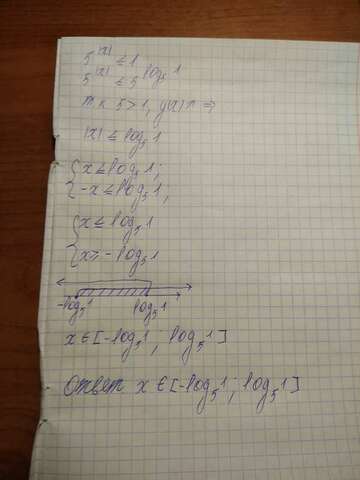 5^|x| ≤ 1
5^|x| ≤ 5^log₅1
т.к 5>1, y(x)↑ ⇒
|x| ≤ log₅1
{ x ≤ log₅1;
{ -x ≤ log₅1;
{ x ≤ log₅1
{ x ≥ -log₅1
-log₅1 log₅1
x ∈ [-log₅1; log₅1]
Ответ x ∈ [-log₅1; log₅1]